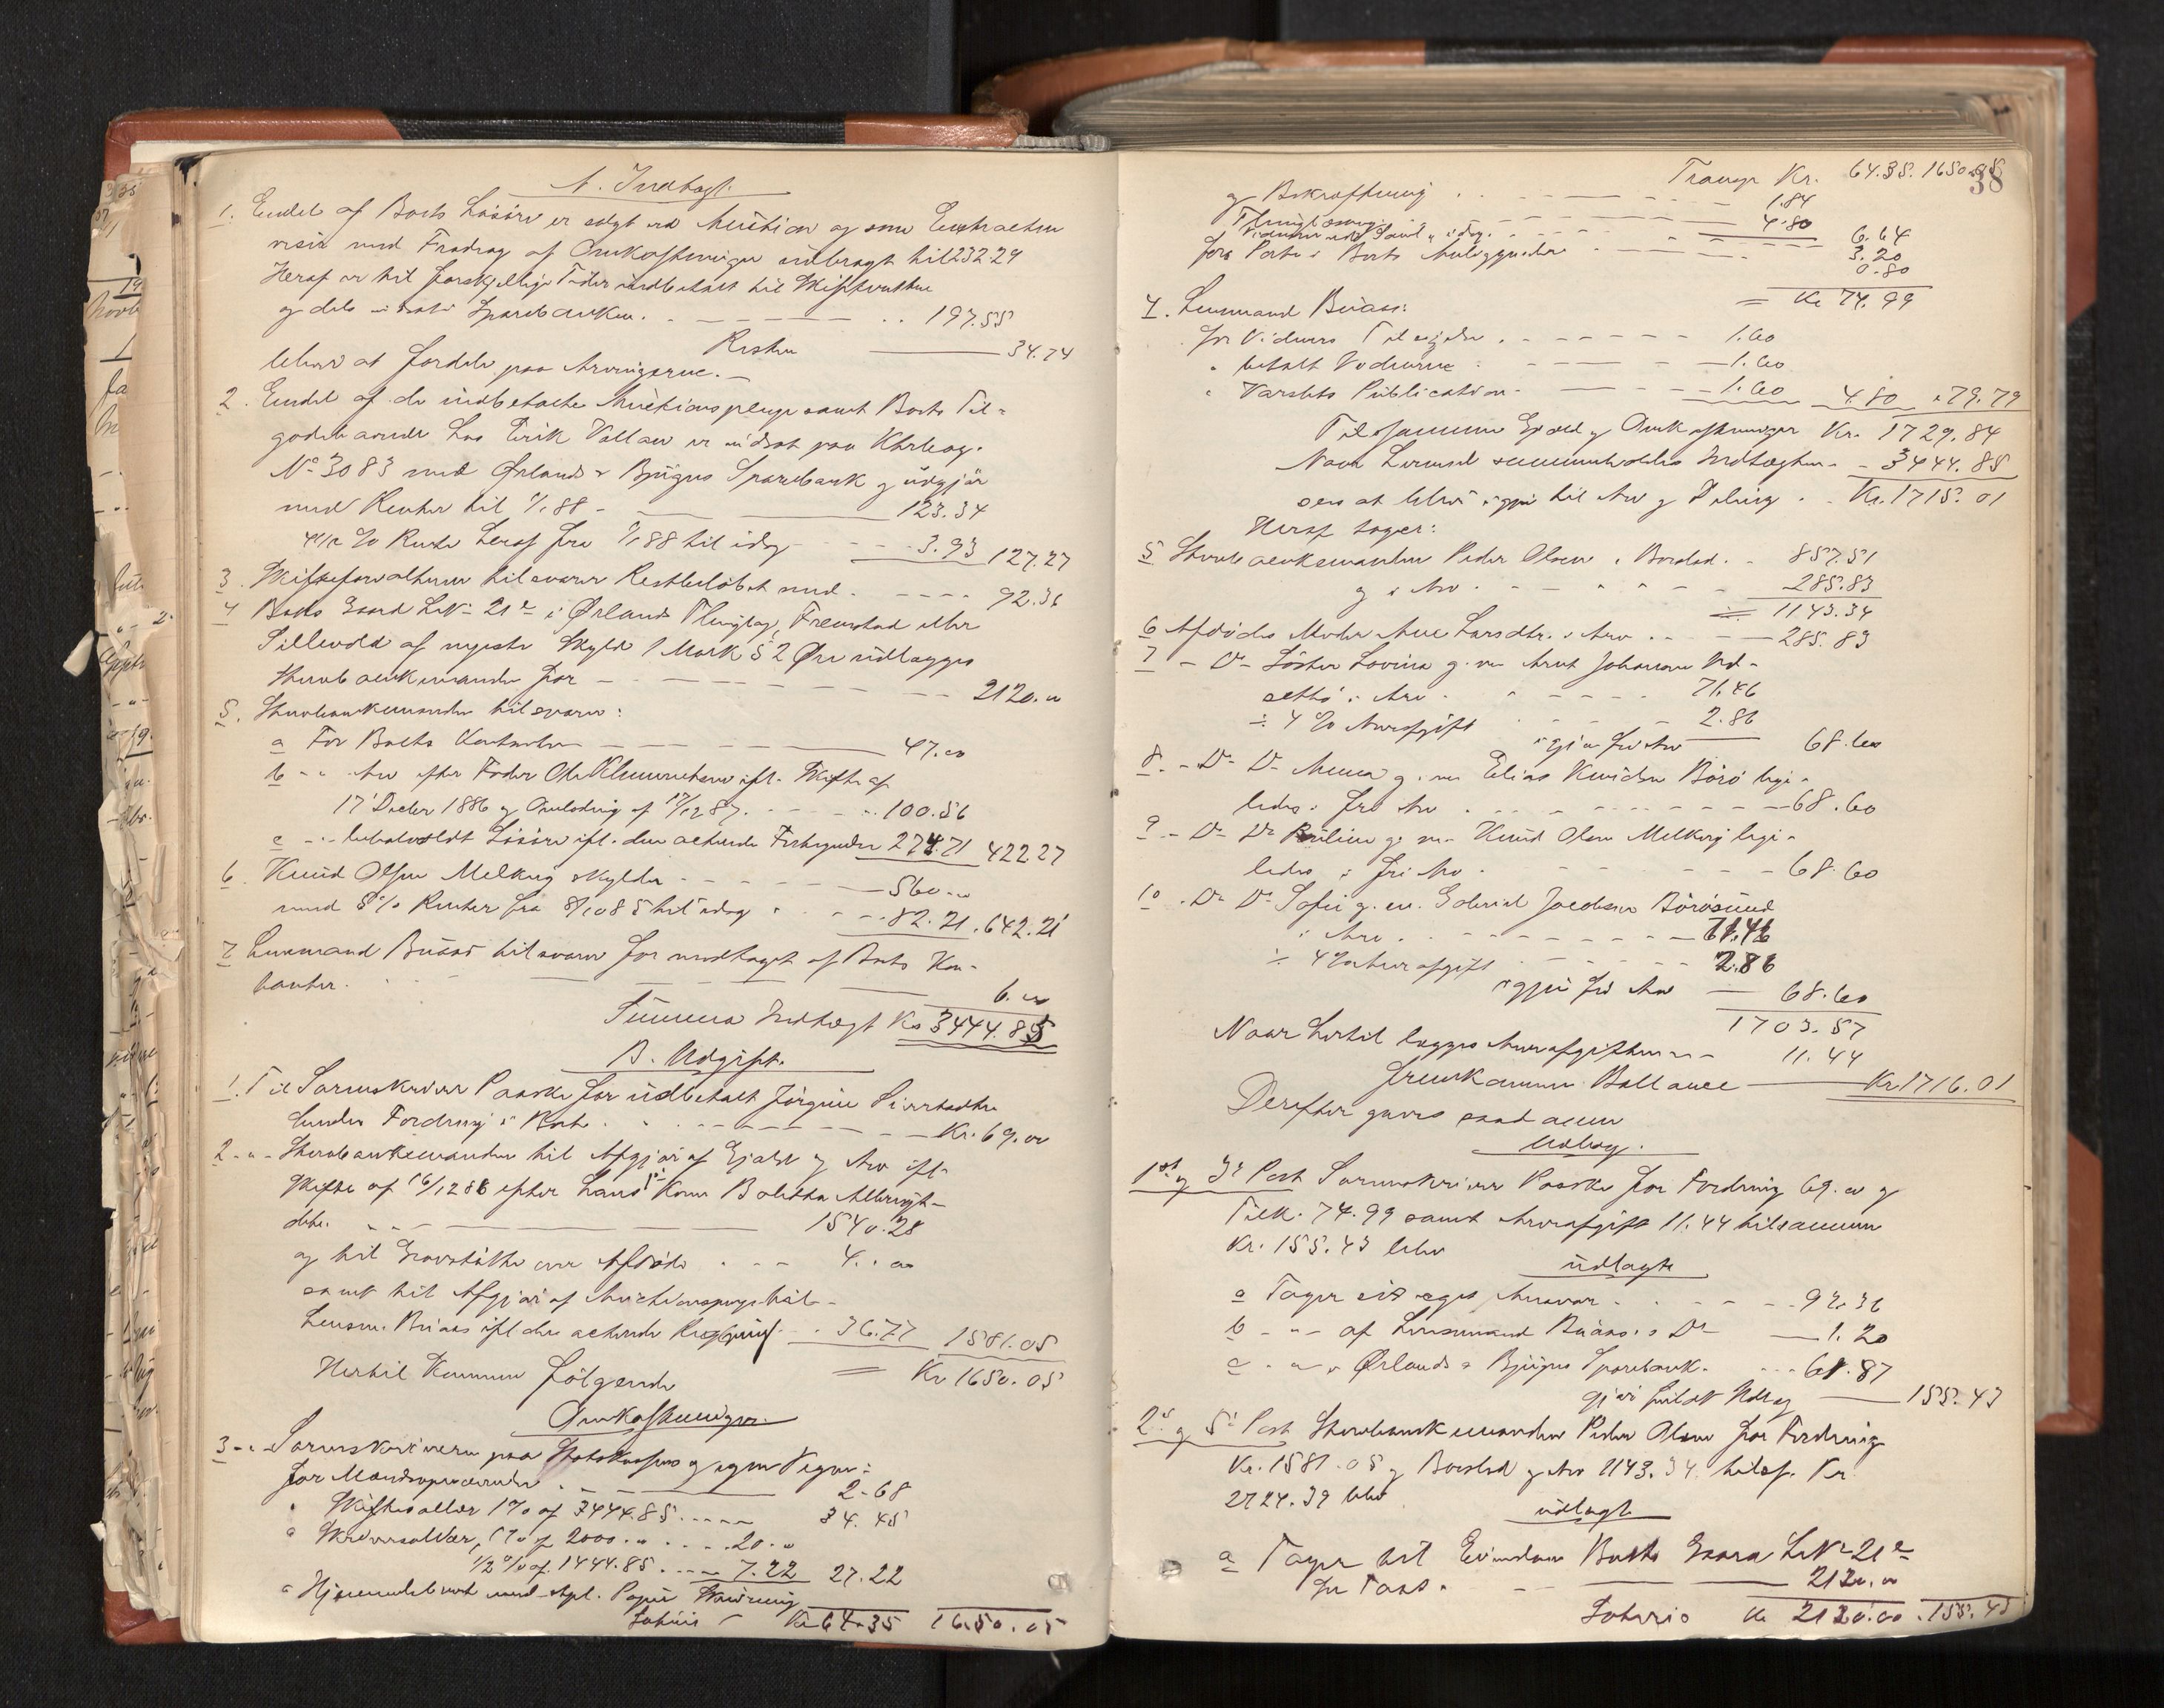 A. Indtægt.
1. Endel af Boets Løsøre er solgt ved Auktion og som Extracten
viser med Fradrag af Omkostninger indbragt til 232.29
Heraf er til forskjellige Tider indbetalt til Skifteretten
og dels indsat i Sparebanken. 197.55
Resten 34.74
bliver at fordele paa Arvingerne.
2. Endel af de indbetalte Auktionspenge samt Boets Til-
godehavende hos Erik Vallan er indsat paa
No 3083 med Ørlands & Bjugns Sparebank og udgjør
med Renter til 1/1 88 - 123.34
4 1/2 % Rente heraf fra 1/1 88 til idag 3.93 127.27
3. Skifteforvalteren tilsvarer Restbeløbet med 92.36
4 Boets Gaard LNo 21e i Ørlands Thinglag,
af nyeste Skyld 1 Mark 52 Øre udlægges
Stervboenkemanden for 2120.00
5. Stervboenkemanden tilsvarer:
a For Boets Contanter 47.00
b - " - Arv efter Fader Ole ifl. Skifte af
17 Decbr 1886 og Omlodning af 17/12 87. 100.56
c - " - beholdt Løsøre ifl. den actende Fortegnelse 274.71 422.27
6. Knud Olsen Melkvig skylder 560.00
med 5 % Renter fra 8/10 85 til idag 82.21. 642.21
7 Lensmand Buaas tilsvarer for modtaget af Boets Kon-
tanter. 6.00
Summa Indtægt Kr 3444.85
B. Udgift.
1. Til Sorenskriver Paaske for udbetalt Jørgine
Fordring i Boet Kr. 69.00
2 - " - Stervboenkemanden til Afgjør af Gjæld og Arv ifl.
Skifte af 16/12 86 efter hans 1ste Kone Bolette Albrigt-
dtr. 1540.28
og til Gravstøtte over Afdøde 4.00
samt til Afgjør af
Lensm. Buaas ifl. den actende 36.77 1581.05
= Kr 1650.05
Hertil kommer følgende
Omkostninger.
3 - " Sorenskriveren paa Statskassens og egne Vegne:
for 2.68
" Skiftesallær 1 % af 3444.85 34.45
" Skriversallær, 1 % af 2000.00 20.00
1/2 % af 1444.85 7.22 27.22
" Hjemmelsbrev med stpl. Papir
Lateris Kr 64.35 1650.05
38
Transp Kr. 64.35. 1650.05
og Bekræftning 1.84
Thinglæsning 4.80 6.64
3.20
for Porto i Boets Anliggender 0.80
= Kr 74.99
4. Lensmand Buaas:
for Vidners Tilsigelse 1.60
" betalt Vidnerne 1.60
" Varslets Publication 1.60 4.80 " 79.79
Tilsammen Gjæld og Omkostninger Kr. 1729.84
Naar herved sammenholdes Indtægten 3444.85
sees at blive igjen til Arv og Deling Kr. 1715.01
Heraf tager:
5 Stervboenkemanden Peder Olsen i Boeslod. 857.51
og i Arv 285.83
= 1143.34
6 Afdødes Moder Ane Larsdtr. i Arv 285.83
7 - Do - Søster Lovina g. m. Arnt Johansen
i Arv 71.46
÷ 4 % Arveafgift 2.86
igjen fri Arv 68.60
8. - Do Do Anna g. m. Elias Knudsen Børø lige-
ledes i fri Arv 68.60
9 - Do Do g. m. Knud Olsen Melkvig lige-
ledes i fri Arv 68.60
10 - Do Do Sofie g. m. Børøsund
i Arv 71.46
÷ 4 % Arveafgift 2.86
igjen fri Arv 68.60
1703.57
Naar hertil lægges Arveafgiften 11.44
fremkommer Ballance Kr. 1715.01
Derefter gjøres saadanne
Udlæg.
1st og 3de Post Sorenskriver Paaske for Fordring 69.00 og
Tilk. 74.99 samt Arveafgift 11.44 tilsammen
Kr. 155.43 blev
udlagt
a Tager sit eget Ansvar 92.36
b - " - af Lensmand Buaas's Do 1.20
c - " - " Ørlands & Bjugns Sparebank. 61.87
gjør fuldt Udlæg 155.43
2de og 5te Post Stervboenkemanden Peder Olsen for Fordring
Kr. 1581.05 og Boeslod og Arv 1143.34 tils. Kr.
2724.39 blev
udlagt
a Tager til Eiendom Boets Gaard LNo 21e
for Taxt 2120.00
Lateris Kr 2120.00. 155.43